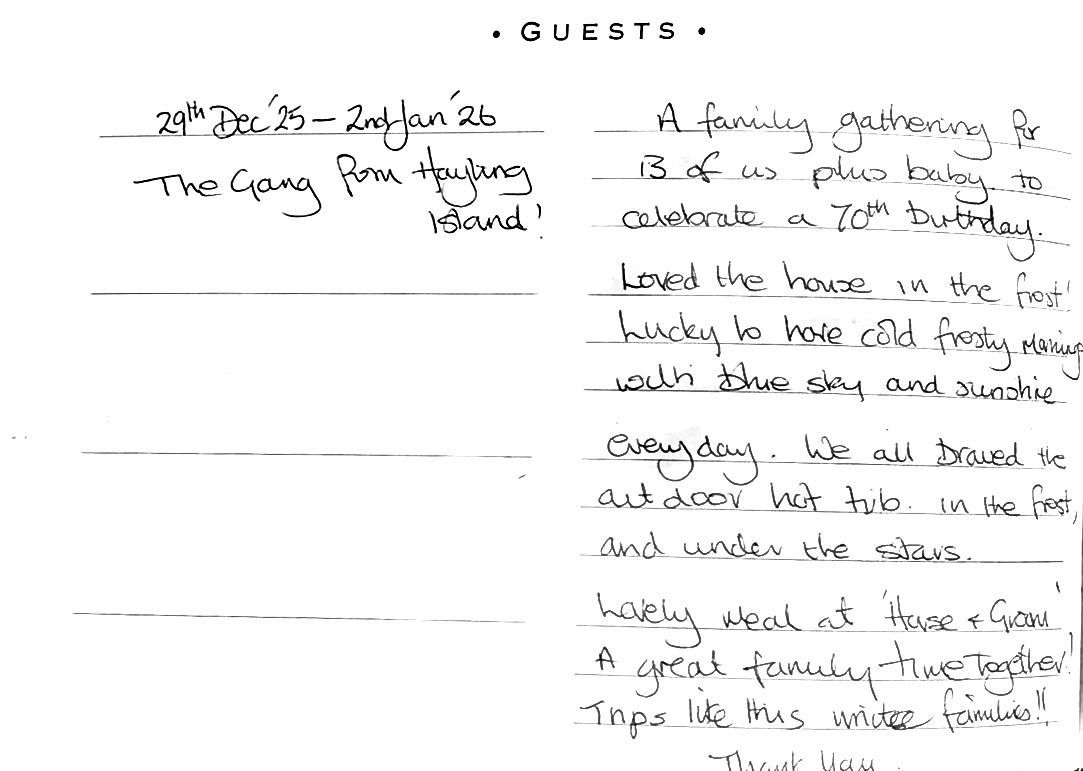 • GUESTS •
29th Dec '25 – 2nd Jan '26
The Gang from Hayling
Island!
A family gathering for
13 of us plus baby. to
celebrate a 70th birthday.
Loved the house in the frost!
Lucky to have cold frosty morning
with blue sky and sunshie
everyday. We all braved the
outdoor hot tub. in the frost,
and under the stars.
Lovely meal at 'Horse & Groom'
A great family time together!
Trips like this unite families!!
Thank You.